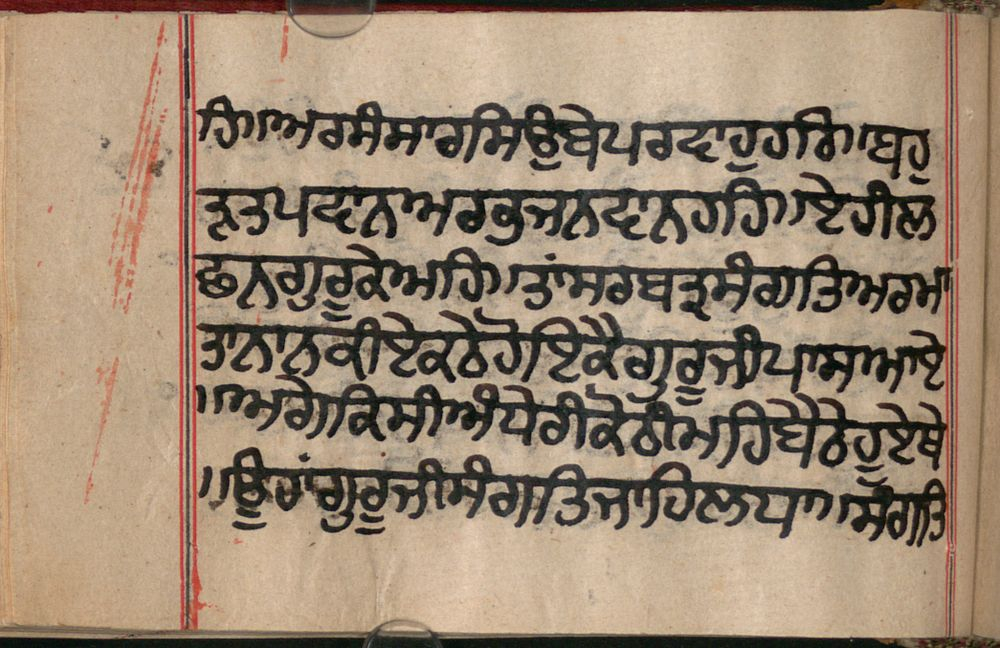 ਹਿ।।ਅਰਸੰਸਾਰਸਿਉਬੇਪਰਵਾਹੁਹਹਿ।।ਬਹੁ
ਤੁਤਪਵਾਨਅਰਭੁਜਨਵਾਨਹਹਿ।।ਏਹੀਲ
ਛਨਗੁਰੂਕੇਆਹਿ।।ਤਾਂਸਰਬਤ੍ਰਸੰਗਤਿਅਰਮਾ
ਤਾਨਾਨਕੀਏਕਠੇਹੋਇਕੈਗੁਰੂਜੀਪਾਸਆਏ
।।ਅਗੇਕਿਸੀਅੰਧੇਰੀਕੋਠੀਮਹਿਬੈਠੇਹੁਏਥੇ
।।ਊਹਾਂਗੁਰੂਜੀਸੰਗਤਿਜਾਹਿਲਧਾ।।ਸੰਗਤਿ